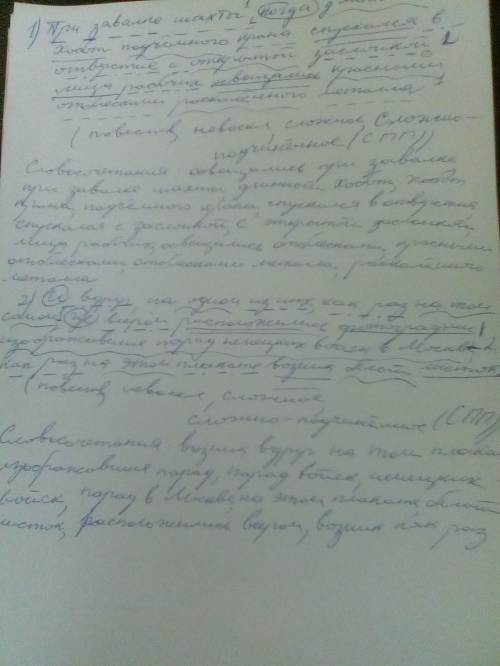 1) При завалке шахты, когда
хобот подъёмного крана спускался в
отверстие с открытой заслонкой
лица рабочих освещались красными
отблесками раскалённого металла
(повеств, невоскл, сложное, Сложно-
подчинённое (СПП))
Словосочетания освещались при завалке
при завалке шахты, длинный хобот, хобот
крана, подъёмного крана, спускался в отверстие
спускался с заслонкой, с открытой заслонкой,
лица рабочих, освещались отблесками, красными
отблесками, отблесками металла, раскалённого
металла
2) И вдруг на одном из них, как раз на том
самом, веером расположенные фотографии
изображавшие парад немецких войск в Москве
как раз на этом плакате возник белый листок
(повеств, невоскл, сложное
сложно-подчинённое (СПП)
Словосочетания возник вдруг, на том плакате
изображавшие парад, парад войск, немецких
войск, парад в Москве, на этом плакате, белый
листок, расположенные веером, возник как раз